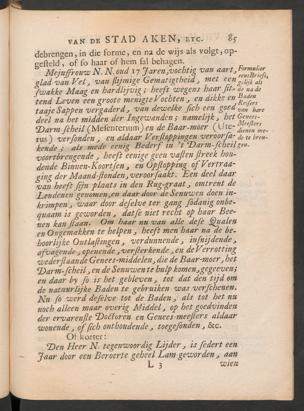 VAN DE STAD AKEN, ETC. 85
debrengen, in die forme, en na de wijs als volgt, op-
gesteld, of so haar of hem sal behagen.
Mejuffrouw N. N. oud 17 Jaren, vochtig van aart,
glad van Vel, van slijmige Gematigtheid, met een
swakke Maag en hardlijvig; heeft wegens haar sit-
tend Leven een groote menigte Vochten, en dikke en
taaje Sappen vergadert, van dewelke sich een goed
deel na het midden der Ingewanden; namelijk, het
Darm-scheil (Mesenterium) en de Baar-moer (Ute-
rus) versonden, en aldaar Verstoppingen veroorsa-
kende; als mede eenig Bederf in 't Darm-scheil
voortbrengende, heeft eenige geen vasten streek hou-
dende Binnen-Koortsen, en Opstopping of Vertraa-
ging der Maand-stonden, veroorsaakt. Een deel daar
van heeft sijn plaats in den Rug-graat, omtrent de
Lendenen genomen, en daar door de Senuwen doen in-
krimpen, waar door deselve ter gang sodanig onbe-
quaam is geworden, datse niet recht op haar Bee-
nen kan staan. Om haar nu van alle dese Qualen
en Ongemakken te helpen, heeft men haar na de be-
hoorlijke Ontlastingen, verdunnende, insnijdende,
afvagende, openende, versterkende, en de Verrotting
wederstaande Genees-middelen, die de Baar-moer, het
Darm-scheil, en de Senuwen te hulp komen, gegeven;
en daar by so is het gebleven, tot dat den tijd om
de natuurlijke Baden te gebruiken was verschenen.
Nu so werd deselve tot de Baden, als tot het nu
noch alleen maar overig Middel, op het goedvinden
der ervarenste Doctoren en Genees-meesters aldaar
wonende, of sich onthoudende, toegesonden, &c.
Of korter:
Den Heer N. tegenwoordig Lijder, is sedert een
Jaar door een Beroerte geheel Lam geworden, aan
L 3 wien
Formulier
eens Briefs,
gelijk als
de na de
Baden
Reisers
van hare
Genees-
Meesters
dienen me-
de te bren-
gen.